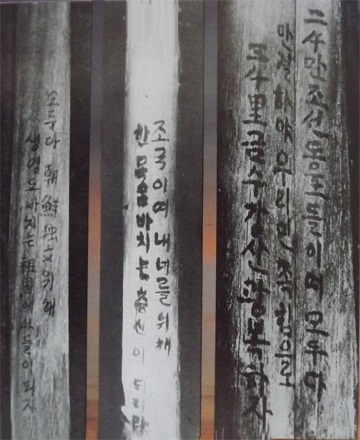 二千만조선동포들이여 모두다
단결하야 우리의 총힘으로
三千里금수강산광복하자
조국이여 내 너를 위해
한목숨바치는 충신이 되리라
모두다 朝鮮独立위해
생명도 바치는 祖国 아들이되자